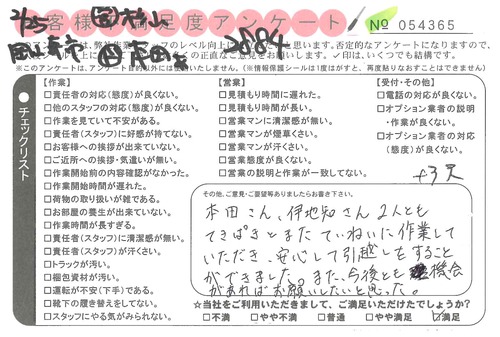 お客様満足度アンケート
№ 054365
2/25
2884
岡山東市
【作業】
□責任者の対応(態度)が良くない。
□他のスタッフの対応(態度)が良くない。
□作業を見ていて不安がある。
□責任者(スタッフ)に好感が持てない。
□お客様への挨拶が出来ていない。
□ご近所への挨拶・気遣いが無い。
□作業開始前の内容確認がなかった。
□作業開始時間が遅れた。
□荷物の取り扱いが雑である。
□お部屋の養生が出来ていない。
□作業時間が長すぎる。
□責任者(スタッフ)に清潔感が無い。
□責任者(スタッフ)が汗くさい。
□トラックが汚い。
□梱包資材が汚い。
□運転が不安(下手)である。
□靴下の履き替えをしてない。
□スタッフにやる気がみられない。
チェックリスト
【営業】
□見積もり時間に遅れた。
□見積もり時間が長い。
□営業マンに清潔感が無い。
□営業マンが煙草くさい。
□営業マンが汗くさい。
□営業態度が良くない。
□営業の説明と作業が一致してない。
【受付・その他】
□電話の対応が良くない。
□オプション業者の説明
・作業が良くない。
□オプション業者の対応
(態度)が良くない。
その他、ご意見・ご要望等ありましたらお書き下さい。
本田さん、伊地知さん2人とも
てきぱきとまたていねいに作業して
いただき、安心して引越しをすること
ができました。また、今後とも機会
があればお願いしたいと思った。
☆当社をご利用いただきまして、ご満足いただけたでしょうか?
□不満 □やや不満 □普通 □やや満足 ☑満足